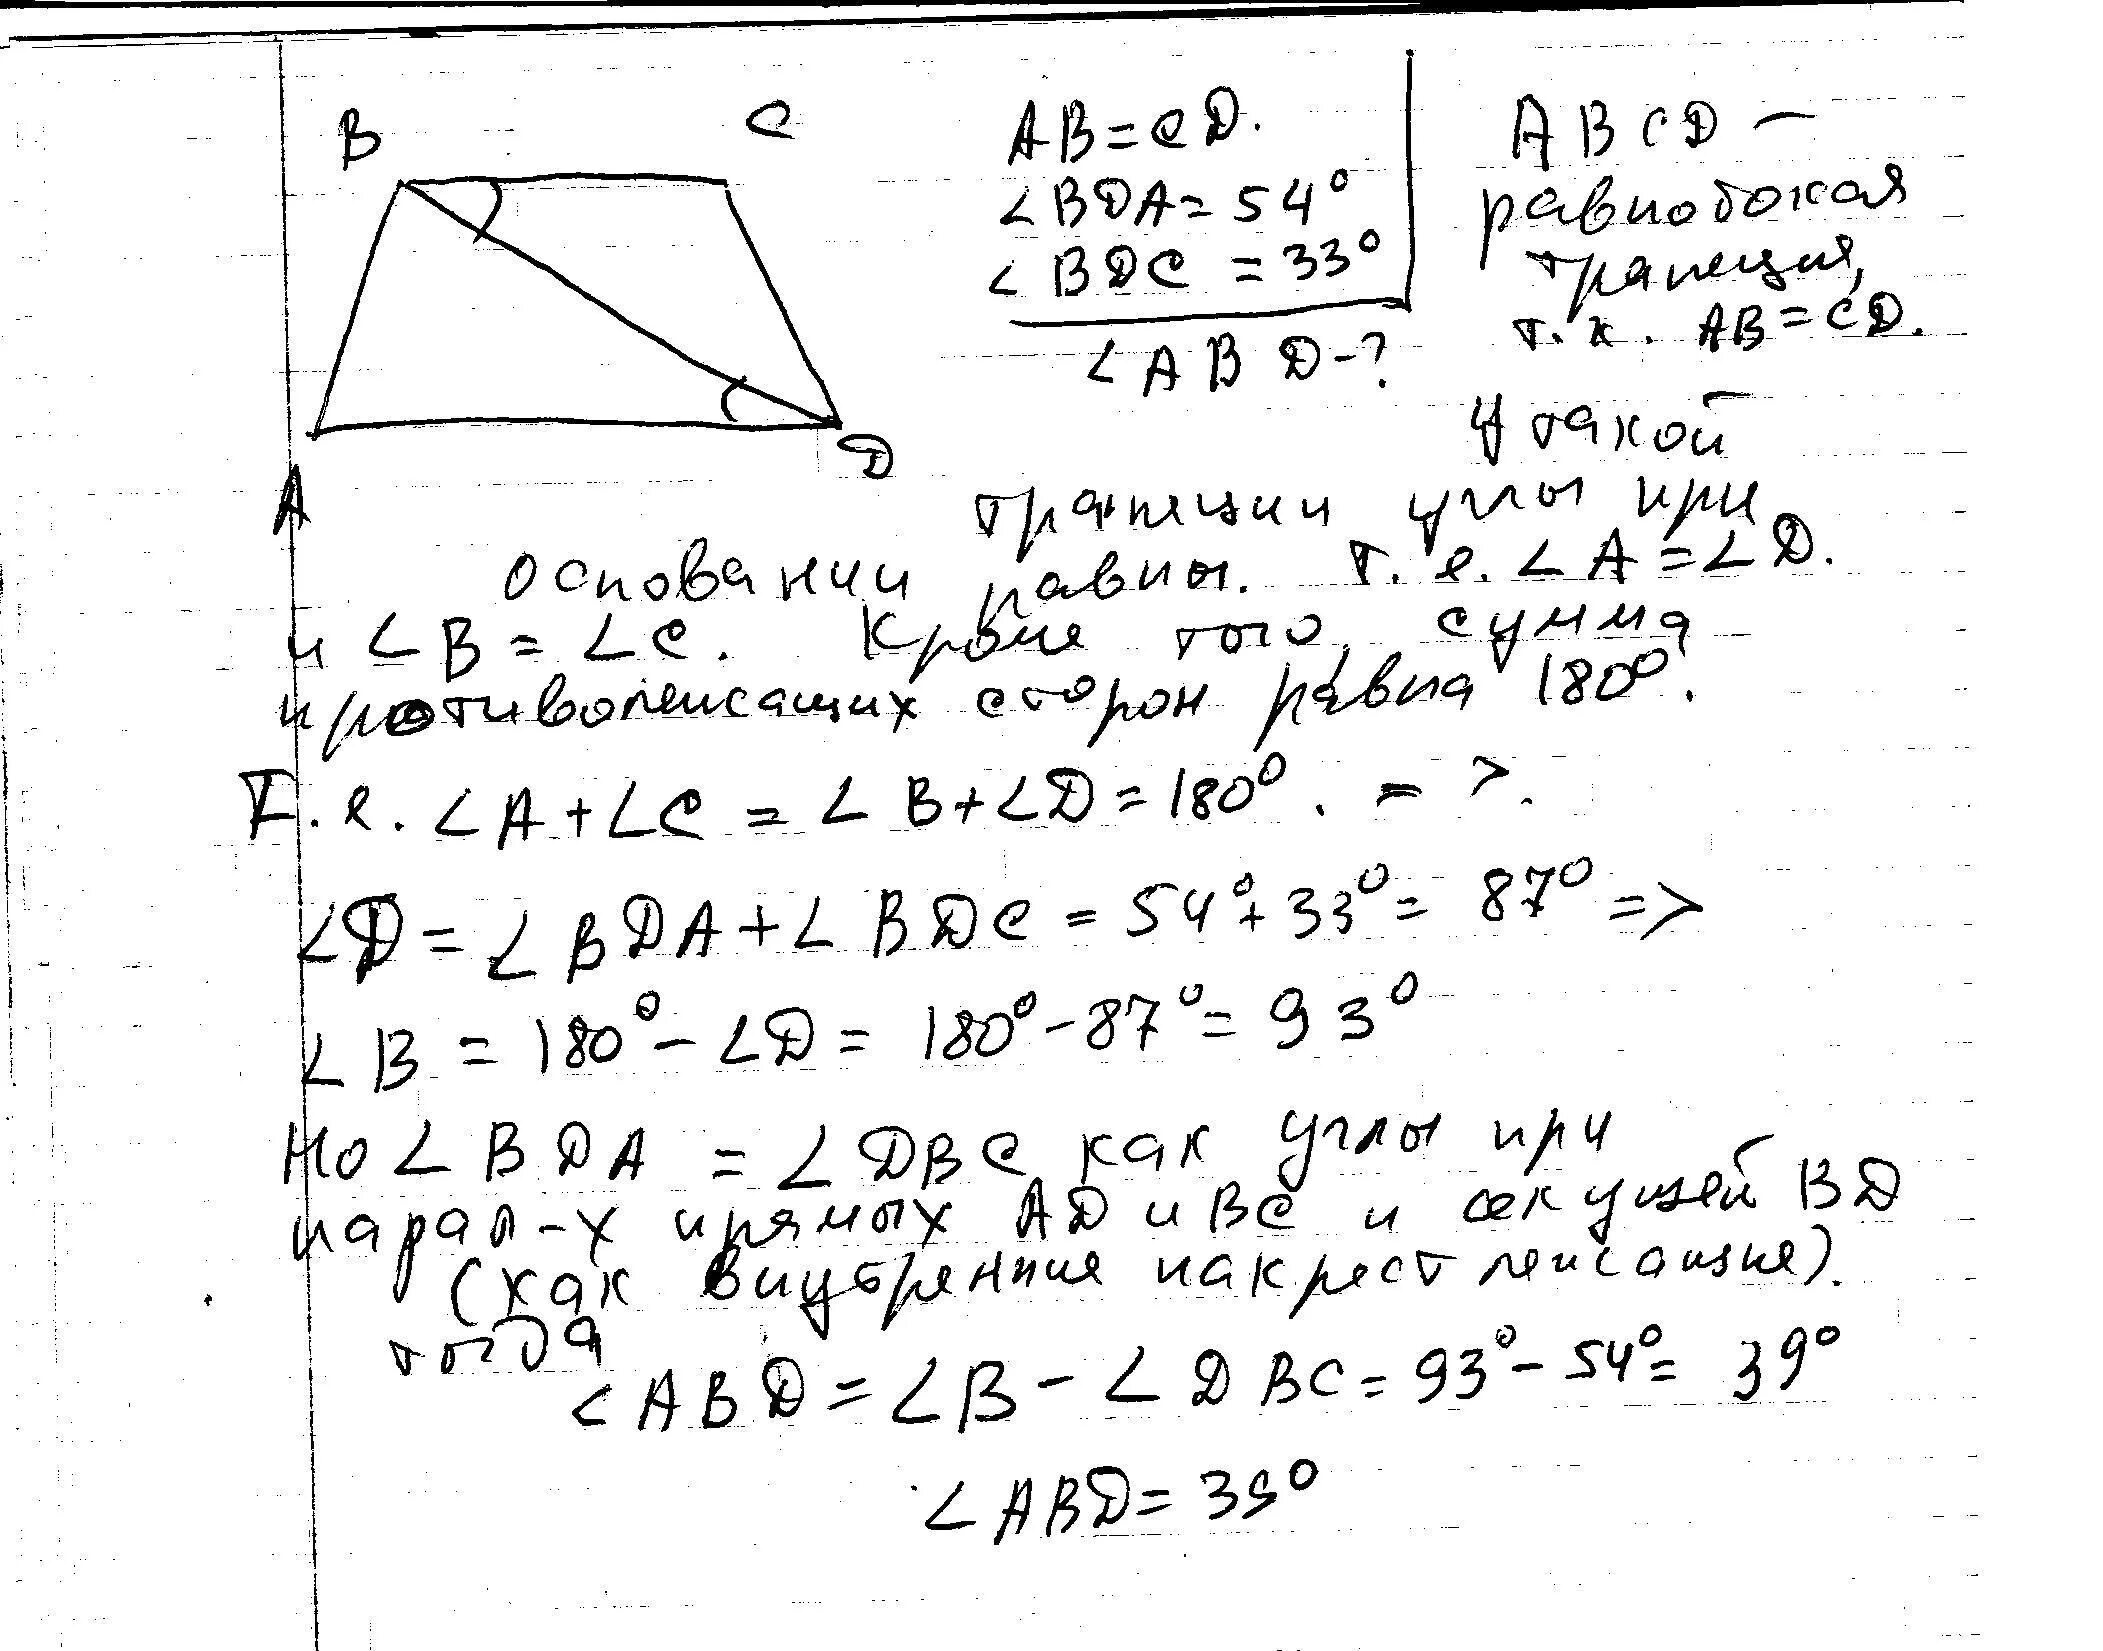 B C
A D
AB = CD.
∠BDA = 54°
∠BDC = 33°
∠ABD - ?
ABCD —
равнобокая
трапеция,
т.к. AB = CD.
У такой
трапеции углы при
основании равны. т.е. ∠A = ∠D.
и ∠B = ∠C. Кроме того, сумма
противолежащих сторон равна 180°.
Т.е. ∠A + ∠C = ∠B + ∠D = 180°. =>.
∠D = ∠BDA + ∠BDC = 54° + 33° = 87° =>
∠B = 180° - ∠D = 180° - 87° = 93°
Но ∠BDA = ∠DBC как углы при
парал-х прямых AD и BC и секущей BD
(как внутренние накрест лежащие).
тогда
∠ABD = ∠B - ∠DBC = 93° - 54° = 39°
∠ABD = 39°